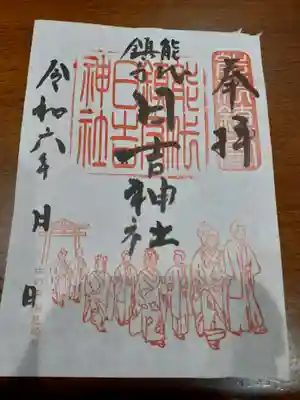 奉拝
能代
鎮守
日吉神社
令和六年 月 日
能代鎮守
日吉
神社